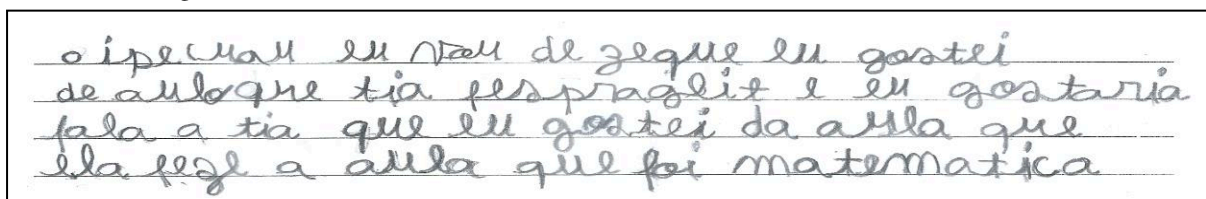 o ipecuau eu vou de zeque eu gostei
de aulaque tia fespraglit e eu gostaria
fala a tia que eu gostei da aula que
ela feze a aula que foi matematica